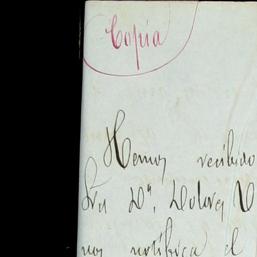 Copia
Hemos recibido
Sra Dª. Dolores V
nos notifica el